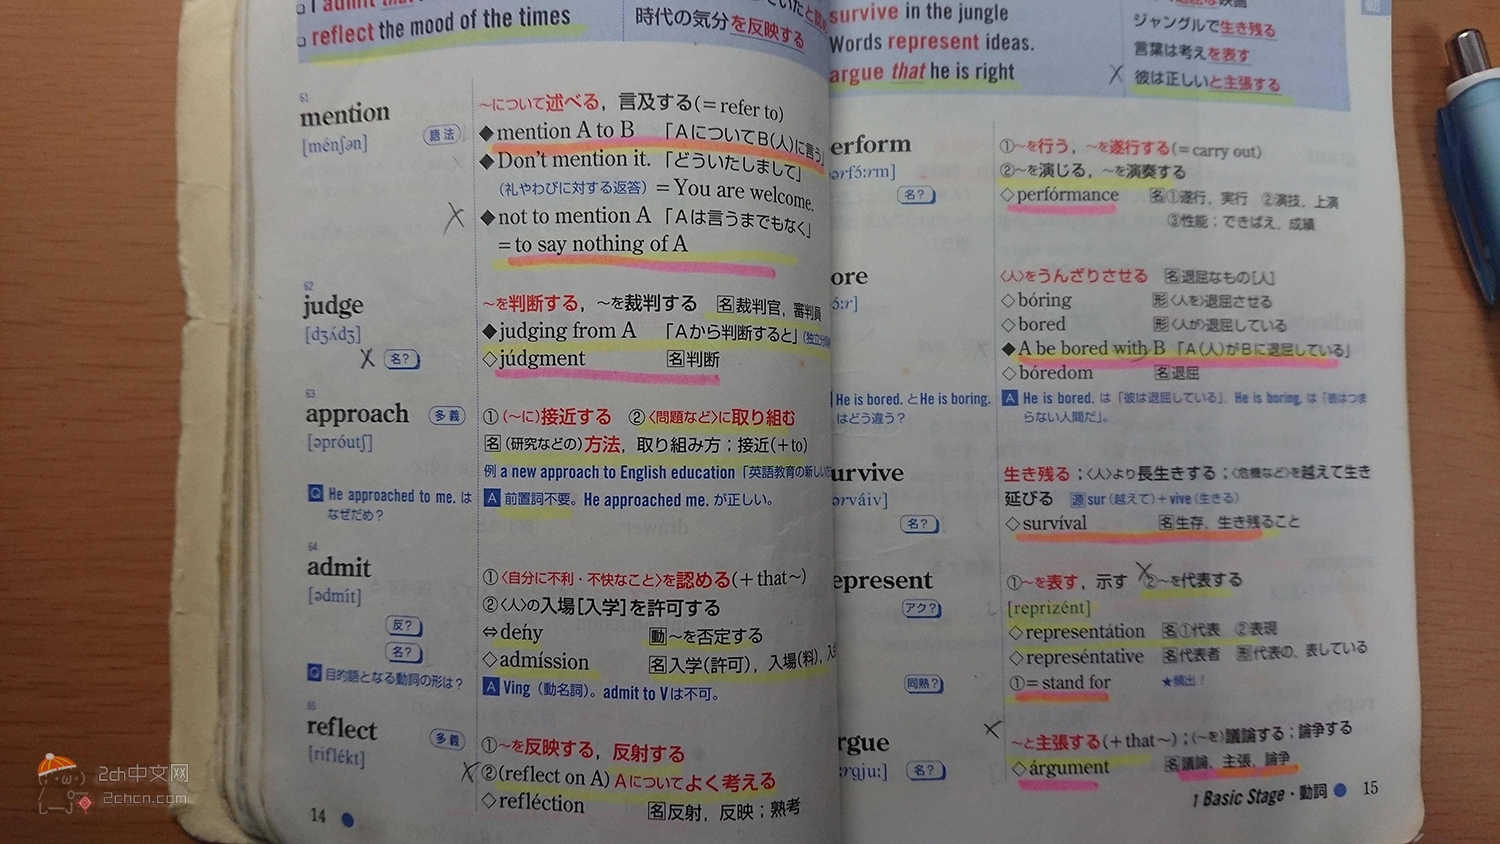 reflect the mood of the times
時代の気分を反映する
61
mention
[ménʃən]
語法
～について述べる，言及する(＝refer to)
◆mention A to B 「AについてB(人)に言う」
◆Don't mention it. 「どういたしまして」
(礼やわびに対する返答) ＝You are welcome.
◆not to mention A 「Aは言うまでもなく」
＝to say nothing of A
62
judge
[dʒʌ́dʒ]
名?
～を判断する，～を裁判する 名裁判官，審判員
◆judging from A 「Aから判断すると」
◇júdgment 名判断
63
approach
多義
[əpróutʃ]
①(～に)接近する ②〈問題など〉に取り組む
名(研究などの)方法，取り組み方；接近(＋to)
例 a new approach to English education「英語教育の新しい
Q He approached to me. は
なぜだめ？
A 前置詞不要。He approached me. が正しい。
64
admit
[ədmít]
反?
名?
①〈自分に不利・不快なこと〉を認める(＋that～)
②〈人〉の入場[入学]を許可する
⇔deńy 動～を否定する
◇admíssion 名入学(許可)，入場(料)，
Q 目的語となる動詞の形は？
A Ving（動名詞）。admit to Vは不可。
65
reflect
多義
[riflékt]
①～を反映する，反射する
②(reflect on A) Aについてよく考える
◇refléction 名反射，反映；熟考
14
survive in the jungle
ジャングルで生き残る
Words represent ideas.
言葉は考えを表す
argue that he is right
彼は正しいと主張する
erform
ərfɔ́ːrm]
名?
①～を行う，～を遂行する(＝carry out)
②～を演じる，～を演奏する
◇perfórmance 名①遂行，実行 ②演技，上演
③性能；できばえ，成績
ore
ɔ́ːr]
〈人〉をうんざりさせる 名退屈なもの[人]
◇bóring 形〈人を〉退屈させる
◇bored 形〈人が〉退屈している
◆A be bored with B 「A(人)がBに退屈している」
◇bóredom 名退屈
He is bored. とHe is boring.
はどう違う？
A He is bored. は「彼は退屈している」，He is boring. は「彼はつま
らない人間だ」。
urvive
ərváiv]
名?
生き残る；〈人〉より長生きする；〈危機など〉を越えて生き
延びる 源 sur (越えて)＋vive (生きる)
◇survíval 名生存，生き残ること
epresent
アク?
同熟?
①～を表す，示す ②～を代表する
[reprizént]
◇representátion 名①代表 ②表現
◇represéntative 名代表者 形代表の，表している
①＝stand for ★頻出！
rgue
ːrgjuː]
名?
～と主張する(＋that～)；(～を)議論する；論争する
◇árgument 名議論，主張，論争
1 Basic Stage・動詞 15
2ch中文网
2chcn.com